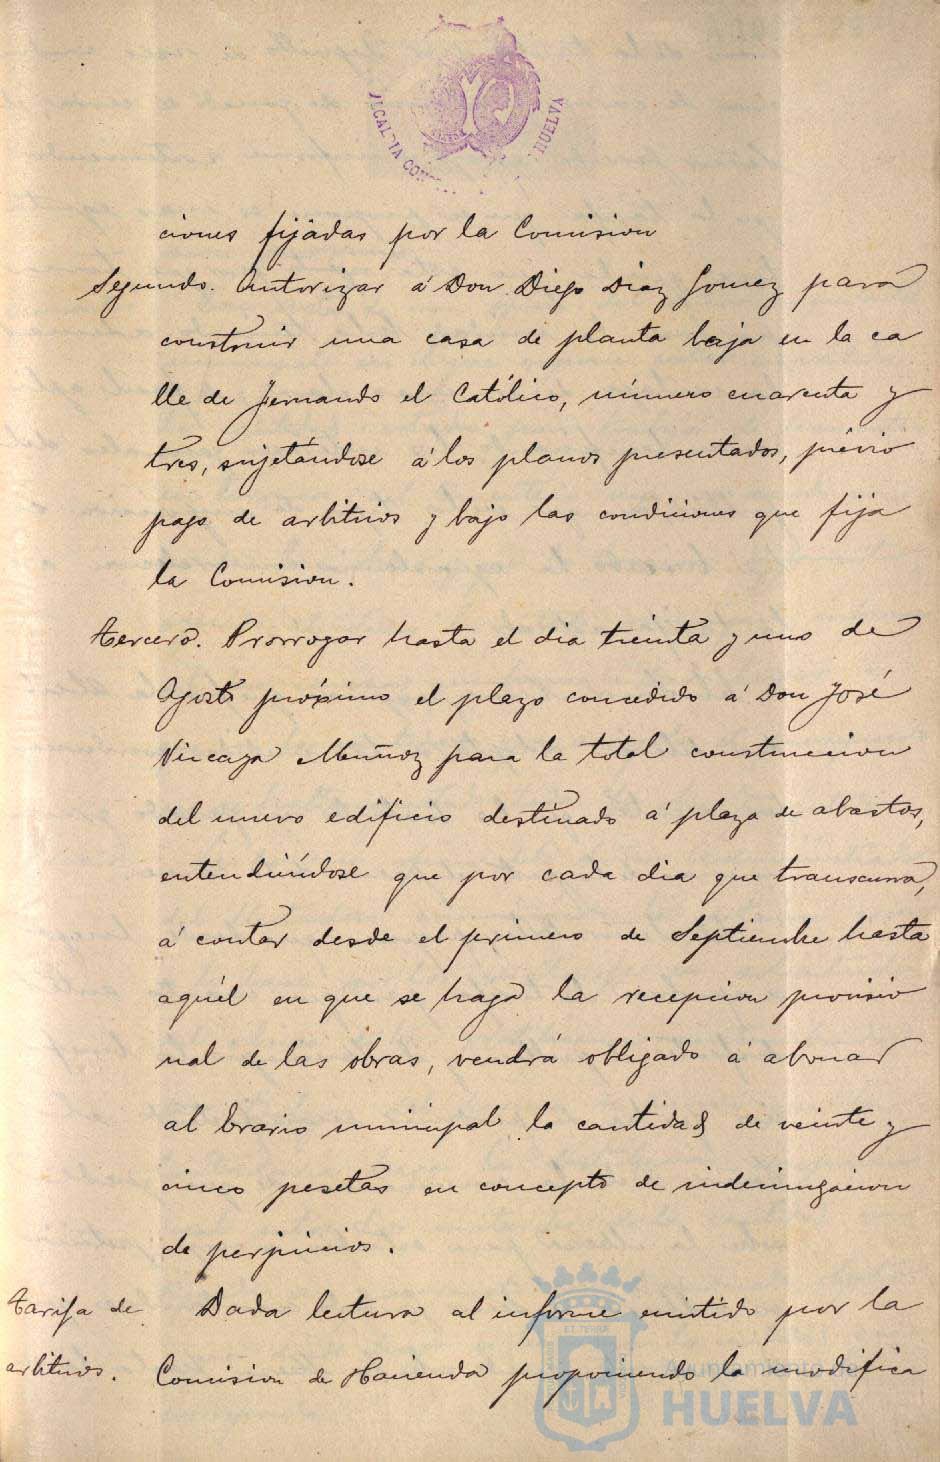 ALCALDIA CON HUELVA
ciones fijadas por la Comision
Segundo. Autorizar á Don Diego Diaz Gomez para
construir una casa de planta baja en la ca
lle de Fernando el Católico, número cuarenta y
tres, sujetándose á los planos presentados, prévio
pago de arbitrios y bajo las condiciones que fija
la Comision.
Tercero. Prorrogar hasta el dia treinta y uno de
Agosto próximo el plazo concedido á Don José
Vizcaya Muñoz para la total construccion
del nuevo edificio destinado á plaza de abastos,
entendiéndose que por cada dia que transcurra,
á contar desde el primero de Septiembre hasta
aquél en que se haga la recepcion provisio
nal de las obras, vendrá obligado á abonar
al Erario municipal la cantidad de veinte y
cinco pesetas en concepto de indemnizacion
de perjuicios.
Tarifa de
arbitrios.
Dada lectura al informe emitido por la
Comision de Hacienda proponiendo la modifica
Ayuntamiento
HUELVA